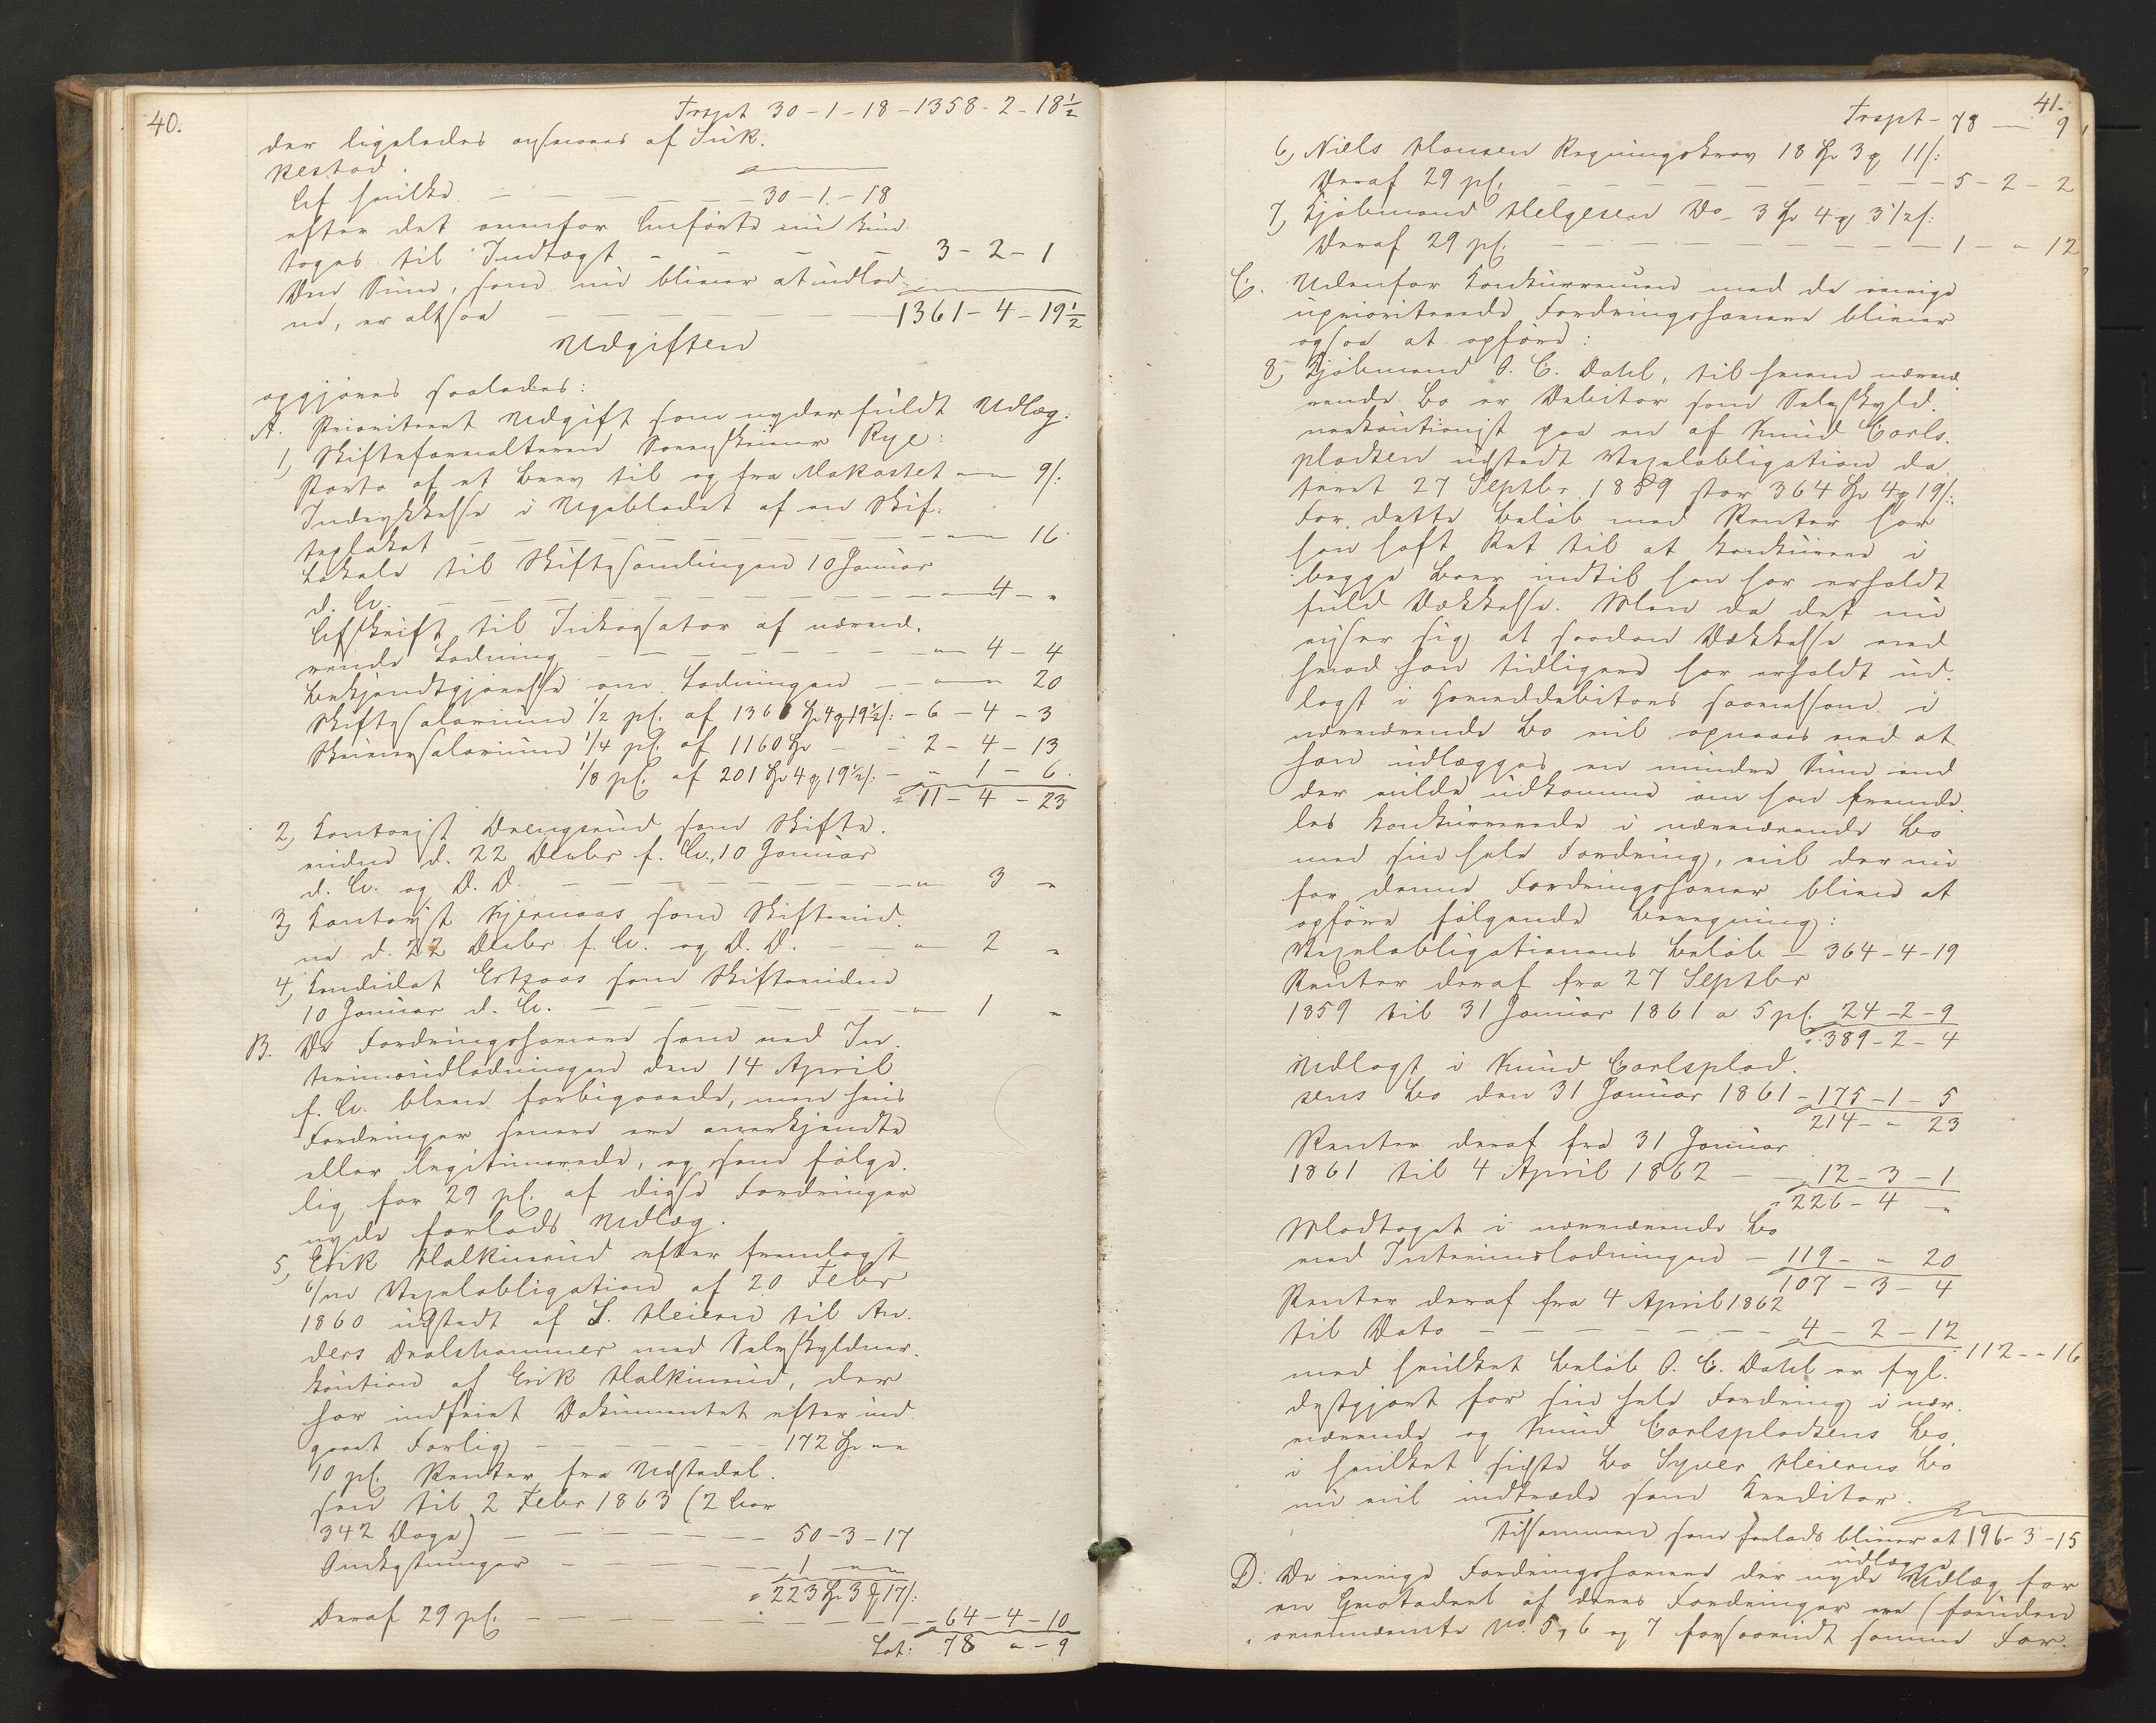 40.
Trspt 30-1-18-1358-2-18½
der ligeledes opfores af Suk.
kestad.
Af hvilke — — — — 30-1-18
efter det ovenfor Anførte nu kund
tages til Indtægt — — — — 3-2-1
Den Sum, som nu bliver at udlod-
ne, er altsaa — — — — 1361-4-19½
Udgiften
opgjøres saaledes:
A. Prioriteret Udgift som nyder fuldt Udlæg:
1, Skifteforvalteren Sorenskriver Rye:
Porto af et Brev til og fra — " — 9ſ:
Indrykkelse i Ugebladet af en Skif-
teplakat — — — — " — 16
Lokale til Skiftesamlingen 10 Januar
d. A. — — — — 4 - "
Afskrift til Inkassator af nærvæ-
rende Lodning — — — — " — 4 - 4
Bekjendtgjørelse om Lodningen — — " — 20
Skiftesalarium ½ pC. af 1361 Spd 4 ₰ 19½ſ: - 6 - 4 - 3
Skriversalarium ¼ pC. af 1160 Spd — - 2 - 4 - 13
⅛ pC. af 201 Spd 4 ₰ 19½ſ: - " 1 - 6.
= 11 - 4 - 23
2, Kontorist Drengsrud som Skifte-
vidne d. 22 Decbr f. A., 10 Januar
d. A. og D. D. — — — — " 3 "
3, Kontorist Kjernaas som Skiftevid-
ne d. 22 Decbr f. A. og D. D. — — " 2 "
4, Kandidat Ertzaas som Skiftevidne
10 Januar d. A. — — — — " 1 "
B. De Fordringshavere som ved In-
terimsudlodningen den 14 April
f. A. bleve forbigaaede, men hvis
Fordringer senere ere anerkjendte
eller legitimerede, og som følge-
lig for 29 pC. af disse Fordringer
nyde forlods Udlæg.
5, Erik Halkinrud efter fremlagt
6/ en Vexelobligation af 20 Febr
1860 udstedt af S. Heieren til An-
ders Dralshammer med Selvskyldner-
kaution af Erik Halkinrud, der
har indfriet Dokumentet efter ind
gaaet Forlig — — — — 172 Spd " "
10 pC. Renter fra Udstedel-
sen til 2 Febr 1863 (2 Aar
342 Dage) — — — — 50-3-17
Omkostninger — — — — 1 " "
= 223 Spd 3 ₰ 17ſ:
Deraf 29 pC. — — — — 64-4-10
Lat: 78 " - 9
41.
Trspt - 78 — 9
6, Niels Hansen Regningskrav 18 Spd 3 ₰ 11ſ:
Deraf 29 pC. — — — — 5-2-2
7, Kjøbmand Helgesen Do - 3 Spd 4 ₰ 3½ſ:
Deraf 29 pC. — — — — 1 - " 12
C. Udenfor Konkurrencen med de øvrige
uprioriterede Fordringshavere bliver
ogsaa at opføre:
8, Kjøbmand O. C. Dahl, til hvem nærvæ-
rende Bo er Debitor som Selvskyld-
nerkautionist paa en af Knud Carls-
pladsen udstedt Vexelobligation da-
teret 27 Septbr 1859 stor 364 Spd 4 ₰ 19ſ:.
For dette Beløb med Renter har
han haft Ret til at konkurrere i
begge Boer indtil han har erholdt
fuld Dækkelse. Men da det nu
viser sig at saadan Dækkelse med
hvad han tidligere har erholdt ud-
lagt i Hoveddebitors saavelsom i
nærværende Bo vil opnaaes ved at
han udlægges en mindre Sum end
der vilde udkomme om han fremde-
les konkurrerede i nærværende Bo
med sin hele Fordring, vil der nu
for denne Fordringshaver blive at
opføre følgende Beregning:
Vexelobligationens Beløb — 364-4-19
Renter deraf fra 27 Septbr
1859 til 31 Januar 1861 a 5 pC. 24-2-9
= 389-2-4
Udlagt i Knud Carlsplad-
sens Bo den 31 Januar 1861 - 175-1-5
214 - " 23
Renter deraf fra 31 Januar
1861 til 4 April 1862 — — 12-3-1
= 226-4 — "
Modtaget i nærværende Bo
ved Interimslodningen — 119 - " 20
107-3-4
Renter deraf fra 4 April 1862
til Dato — — — — 4-2-12
112 - " 16
med hvilket Beløb O. C. Dahl er fyl-
destgjort for sin hele Fordring i nær-
værende og Knud Carlspladsens Bo,
i hvilket sidste Bo Syver Heierens Bo
nu vil indtræde som Kreditor.
Tilsammen som forlods bliver at udlægge 196-3-15
D: De øvrige Fordringshavere der nyde Udlæg for
en Qvotadeel af deres Fordringer ere (foruden
ovennævnte No. 5, 6 og 7 forsaavidt samme For-